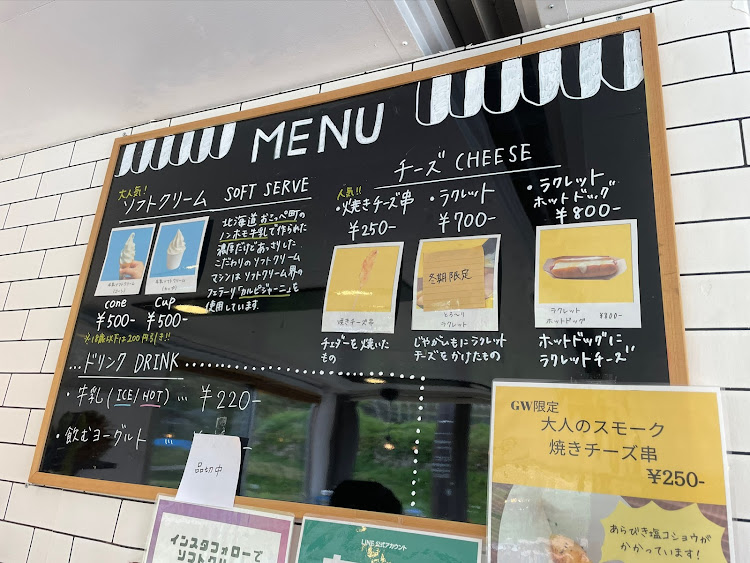 MENU
大人気!
ソフトクリーム SOFT SERVE
北海道 おこっぺ町の
ノンホモ牛乳で作られた
濃厚だけどあっさりした
こだわりのソフトクリーム
マシンは ソフトクリーム界の
フェラーリ「カルピジャーニ」を
使用しています.
cone
¥500-
cup
¥500-
※18歳以下は200円引き!!
...ドリンク DRINK
・牛乳(ICE/HOT)... ¥220-
・飲むヨーグルト... ¥
品切中
チーズ CHEESE
人気!!
・焼きチーズ串
¥250-
焼きチーズ串
チェダーを焼いた
もの
・ラクレット
¥700-
冬期限定
とろ〜り
ラクレット
じゃがいもにラクレット
チーズをかけたもの
・ラクレット
ホットドッグ
¥800-
ラクレット
ホットドッグ ¥800-
ホットドッグに
ラクレットチーズ
GW限定
大人のスモーク
焼きチーズ串
¥250-
あらびき塩コショウが
かかっています!
インスタフォローで
ソフトクリ
LINE 公式アカウント